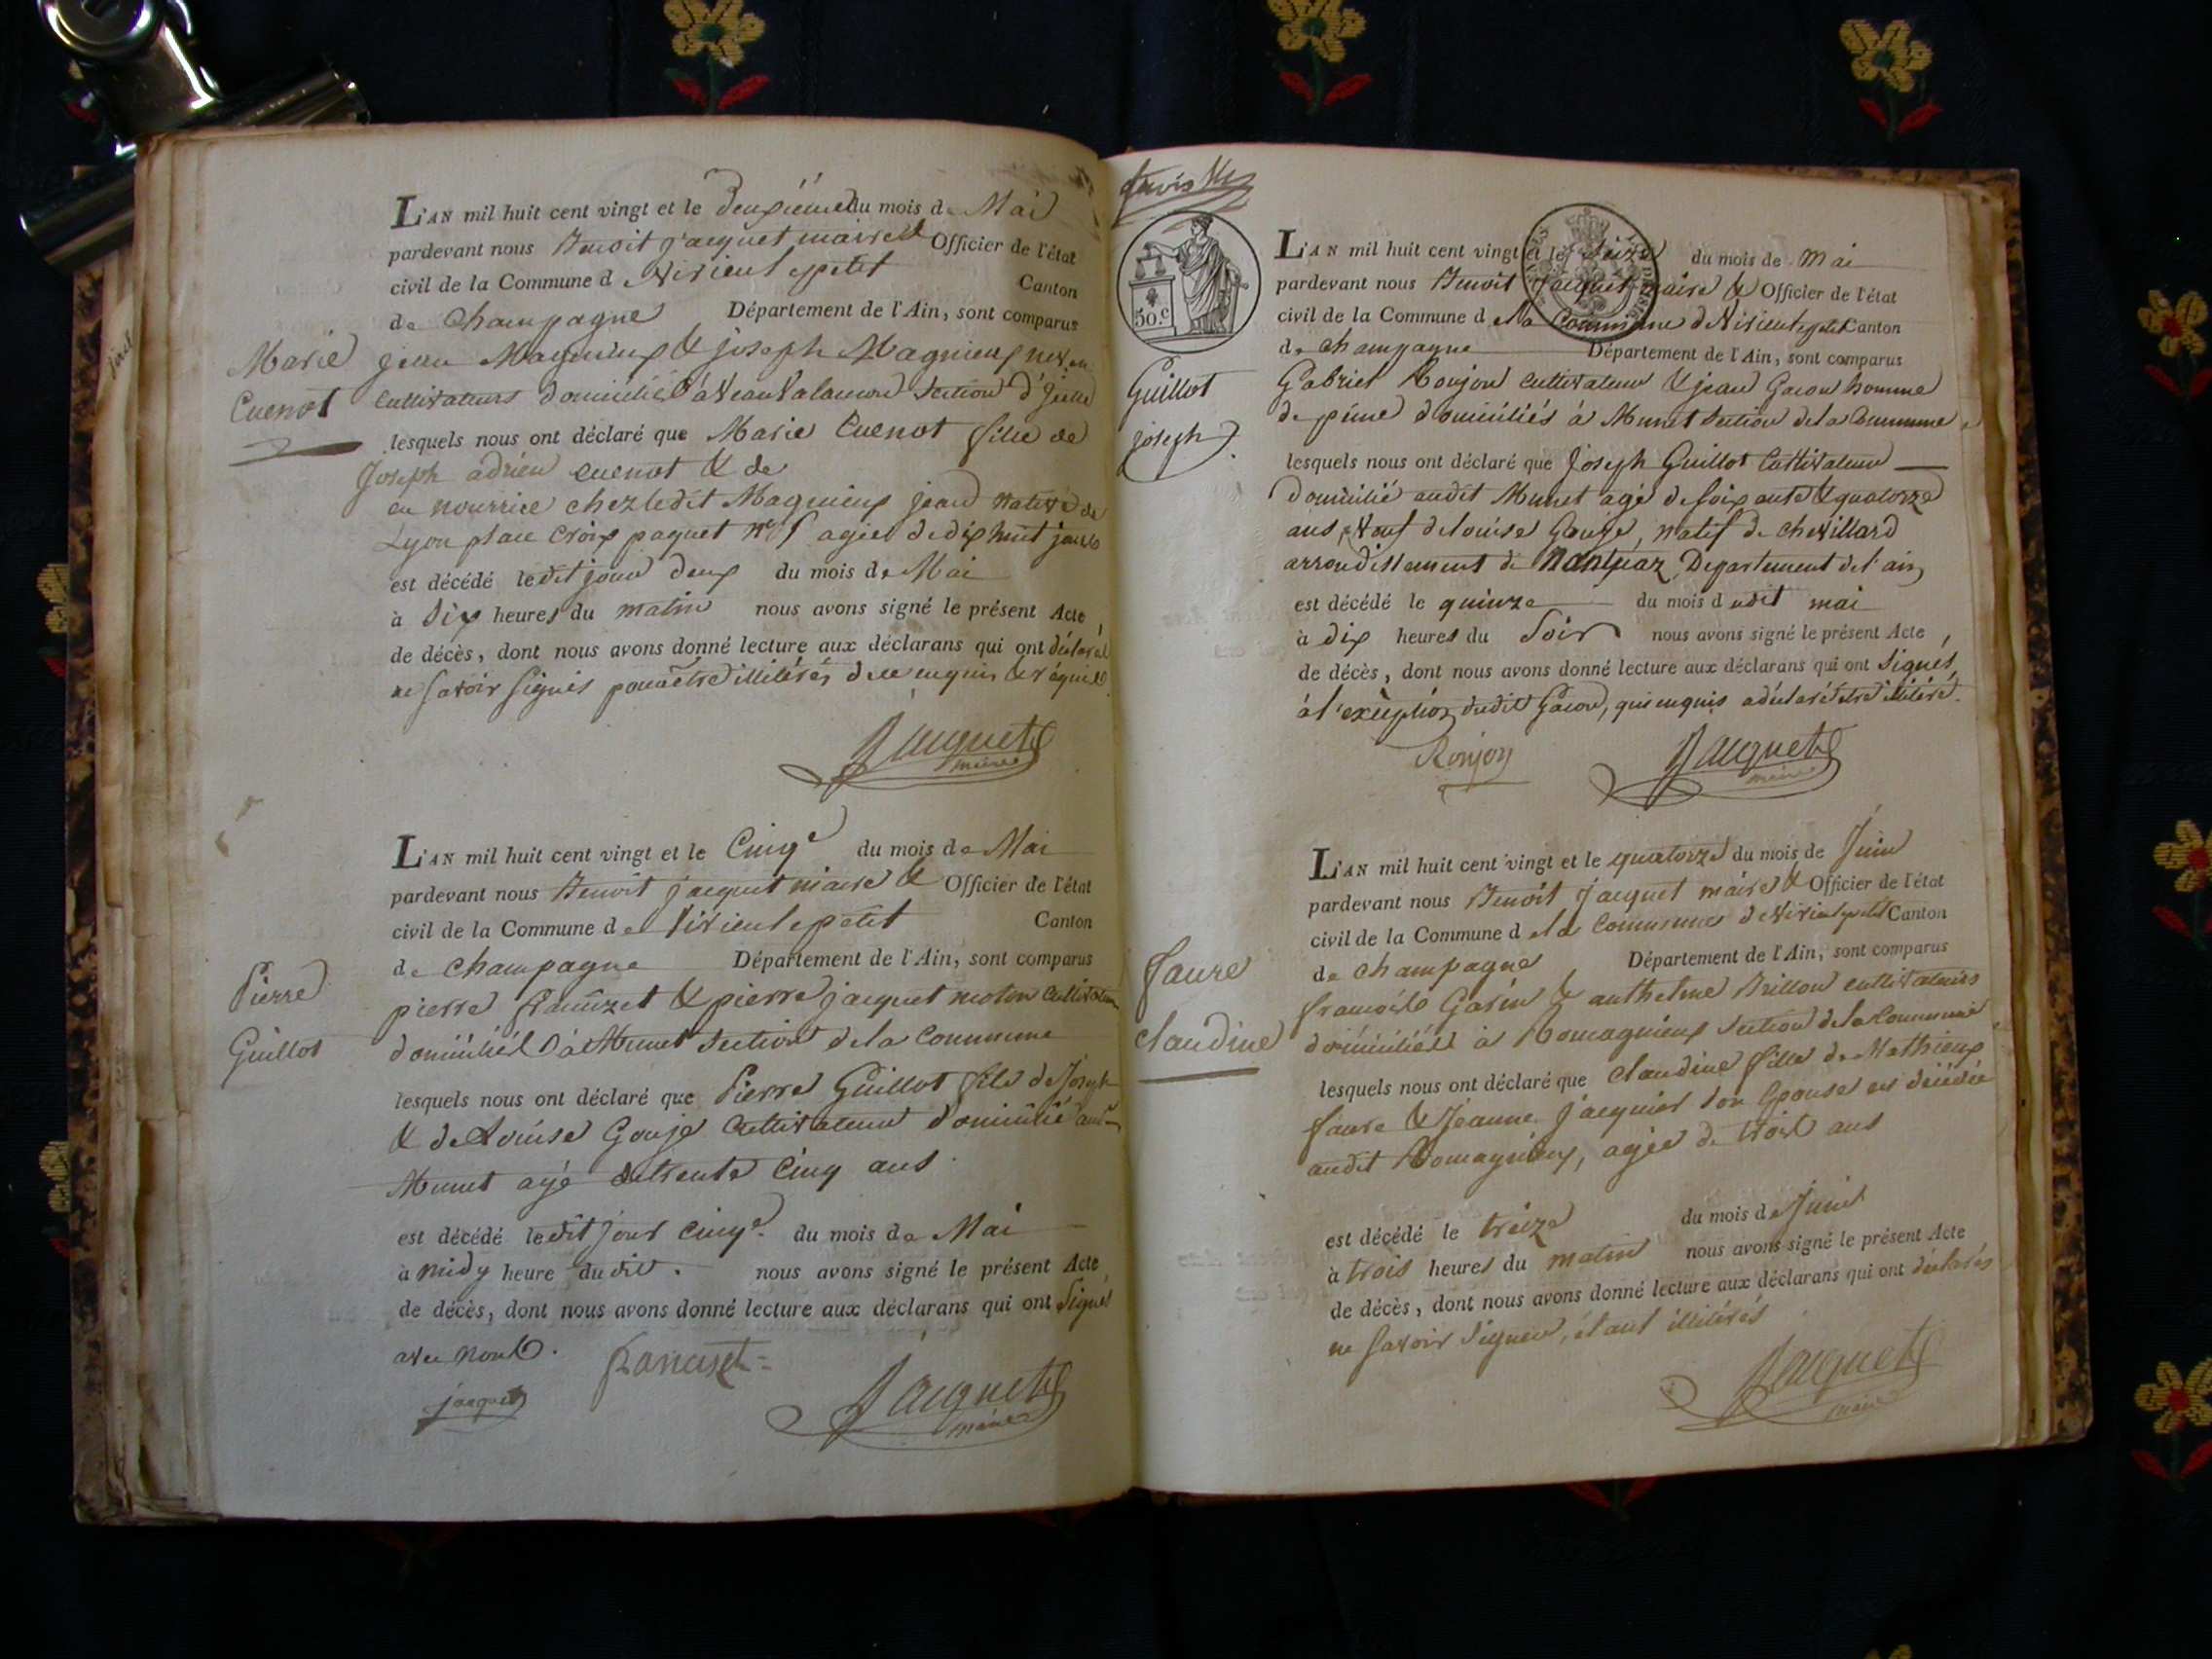 L'AN mil huit cent vingt et le deuxième du mois de Mai
pardevant nous Benoit Jacquet maire & Officier de l'état
civil de la Commune de Virieu le petit Canton
de Champagne Département de l'Ain, sont comparus
Marie
Cuenot
jean Magnieux & joseph Magnieux
cultivateurs domiciliés à Section
lesquels nous ont déclaré que Marie Cuenot fille de
Joseph adrien cuenot & de
en nourrice chez ledit Magnieux jean native de
Lyon place croix paquet agée de dix huit jours
est décédé ledit jour deux du mois de Mai
à dix heures du matin nous avons signé le présent Acte,
de décès, dont nous avons donné lecture aux déclarans qui ont déclaré
ne savoir signés pour être illitérés de ce enquis & réquis
Jacquet
maire
L'AN mil huit cent vingt et le Cinqe du mois de Mai
pardevant nous Benoit jacquet maire & Officier de l'état
civil de la Commune de Virieu le petit Canton
de Champagne Département de l'Ain, sont comparus
Pierre
Guillot
pierre & pierre jacquet
domiciliés à Munet Section de la Commune
lesquels nous ont déclaré que Pierre Guillot fils de Joseph
& de Louise Gouje Cultivateur domicilié audit
Munet agé de trente cinq ans
est décédé ledit jour cinqe du mois de Mai
à midy heure dudit. nous avons signé le présent Acte
de décès, dont nous avons donné lecture aux déclarans qui ont signés
avec nous.
jacquet
Jacquet
maire
50.c
L'AN mil huit cent vingt et le seize du mois de Mai
pardevant nous Benoit Jacquet maire & Officier de l'état
civil de la Commune d e la Commune de Virieu le petit Canton
de Champagne Département de l'Ain, sont comparus
Guillot
joseph
Gabriel Ronjon cultivateur & jean Gacon homme
de domiciliés à Munet Section de la Commune
lesquels nous ont déclaré que Joseph Guillot Cultivateur
domicilié audit Munet agé de soixante & quatorze
ans, veuf de Louise Gouge, natif de chevillard
arrondissement de Nantua, Departement de l'ain
est décédé le quinze du mois dudit mai
à dix heures du Soir nous avons signé le présent Acte,
de décès, dont nous avons donné lecture aux déclarans qui ont signés,
à l'exception dudit Gacon, qui enquis a déclaré être illitéré.
Ronjon
Jacquet
maire
L'AN mil huit cent vingt et le quatorze du mois de Juin
pardevant nous Benoit jacquet maire & Officier de l'état
civil de la Commune d e la Commune de Virieu le petit Canton
de Champagne Département de l'Ain, sont comparus
faure
claudine
francois & anthelme Brillon cultivateurs
domiciliés à Romagnieux Section de la Commune
lesquels nous ont déclaré que claudine fille de Mathieux
faure & Jeanne jacquier son Epouse est décédée
audit Romagnieux, agée de trois ans
est décédé le treize du mois de Juin
à trois heures du matin nous avons signé le présent Acte
de décès, dont nous avons donné lecture aux déclarans qui ont déclarés
ne savoir signer, étant illitérés
Jacquet
maire